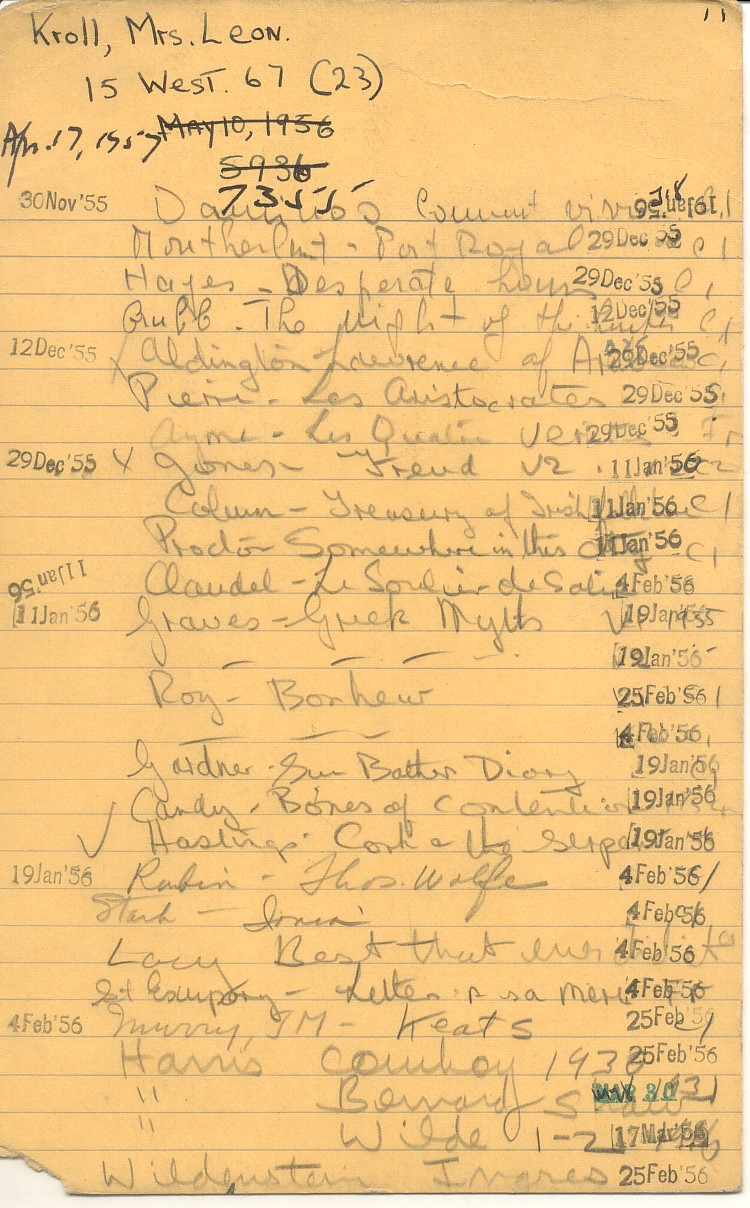 11
Kroll, Mrs. Leon.
15 West. 67 (23)
Apr. 17, 1957 May 10, 1956
5936
7355
30 Nov '55 Daninos Comment 19 Jan '56
Montherlant - Port Royal 29 Dec '55 C 1
Hayes - Desperate hours 29 Dec '55 C 1
Grubb - The night of the hunter 12 Dec '55 C 1
12 Dec '55 x Aldington - Lawrence of 29 Dec '55 C 1
- Les Aristocrates 29 Dec '55
Ayme - Les Quatre Verites 29 Dec '55 Fr
29 Dec '55 x Jones - Freud V2 11 Jan '56
Colum - Treasury of Irish 11 Jan '56 C 1
Proctor Somewhere in this city 11 Jan '56 C 1
11 Jan '56 Claudel - Le Soulier de Satin 4 Feb '56
11 Jan '56 Graves - Greek Myths 19 Jan '56 1955
19 Jan '56
Roy - Bonheur 25 Feb '56
4 Feb '56
Gardner - Sun Bather Diary 19 Jan '56
Candy - Bones of contention 19 Jan '56
✓ Hastings - Cork & the Serpent 19 Jan '56
19 Jan '56 Rubin - Thos. Wolfe 4 Feb '56
Stark - Ionia 4 Feb '56
Lacy Best that ever did it 4 Feb '56
St Exupery - Lettres a sa mere 4 Feb '56
4 Feb '56 Murry, JM - Keats 25 Feb '56
Harris Cowboy 1930 25 Feb '56
" Bernard Shaw 1931 MAR 30
" Wilde 1-2 17 Mar '56
Wildenstein Ingres 25 Feb '56